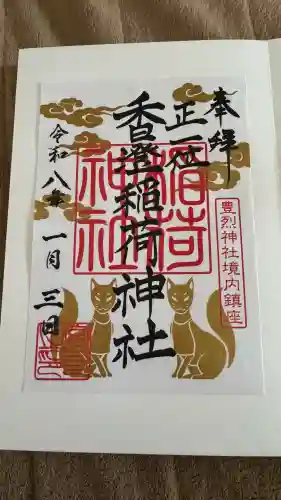 奉拝
正一位
香澄稲荷神社
稲荷
神社
豊烈神社境内鎮座
令和八年一月三日